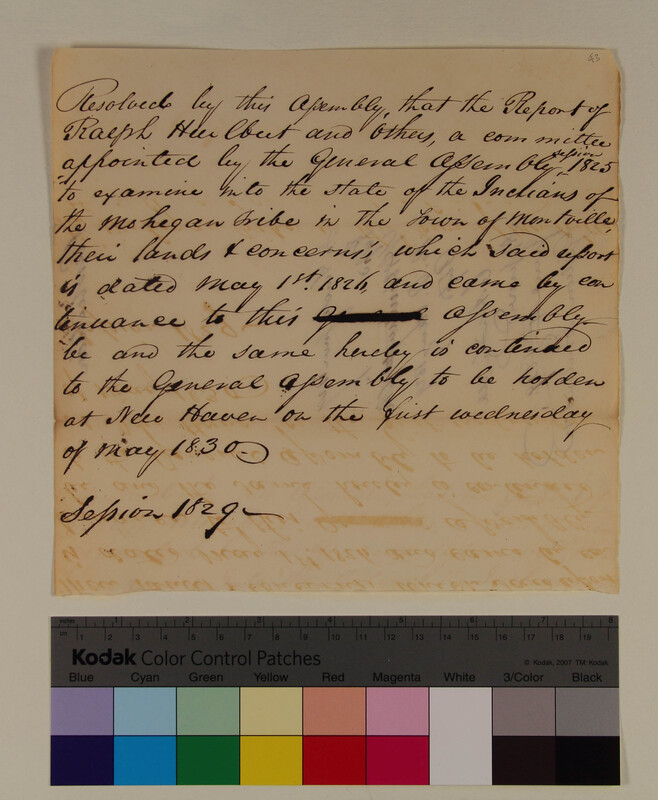 43
Resolved by this Assembly, that the Report of
Ralph Hurlbut and Others, a committee
appointed by the General Assembly session 1825
to examine into the state of the Indians of
the Mohegan tribe in the Town of Montville,
their lands & concerns, which said report
is dated May 1st. 1826, and came by con
tinuance to this Assembly
be and the same hereby is continued
to the General Assembly to be holden
at New Haven on the first wednesday
of May 1830
Session 1829
inches 1 2 3 4 5 6 7 8
cm 1 2 3 4 5 6 7 8 9 10 11 12 13 14 15 16 17 18 19
Kodak Color Control Patches
© Kodak, 2007 TM: Kodak
Blue Cyan Green Yellow Red Magenta White 3/Color Black